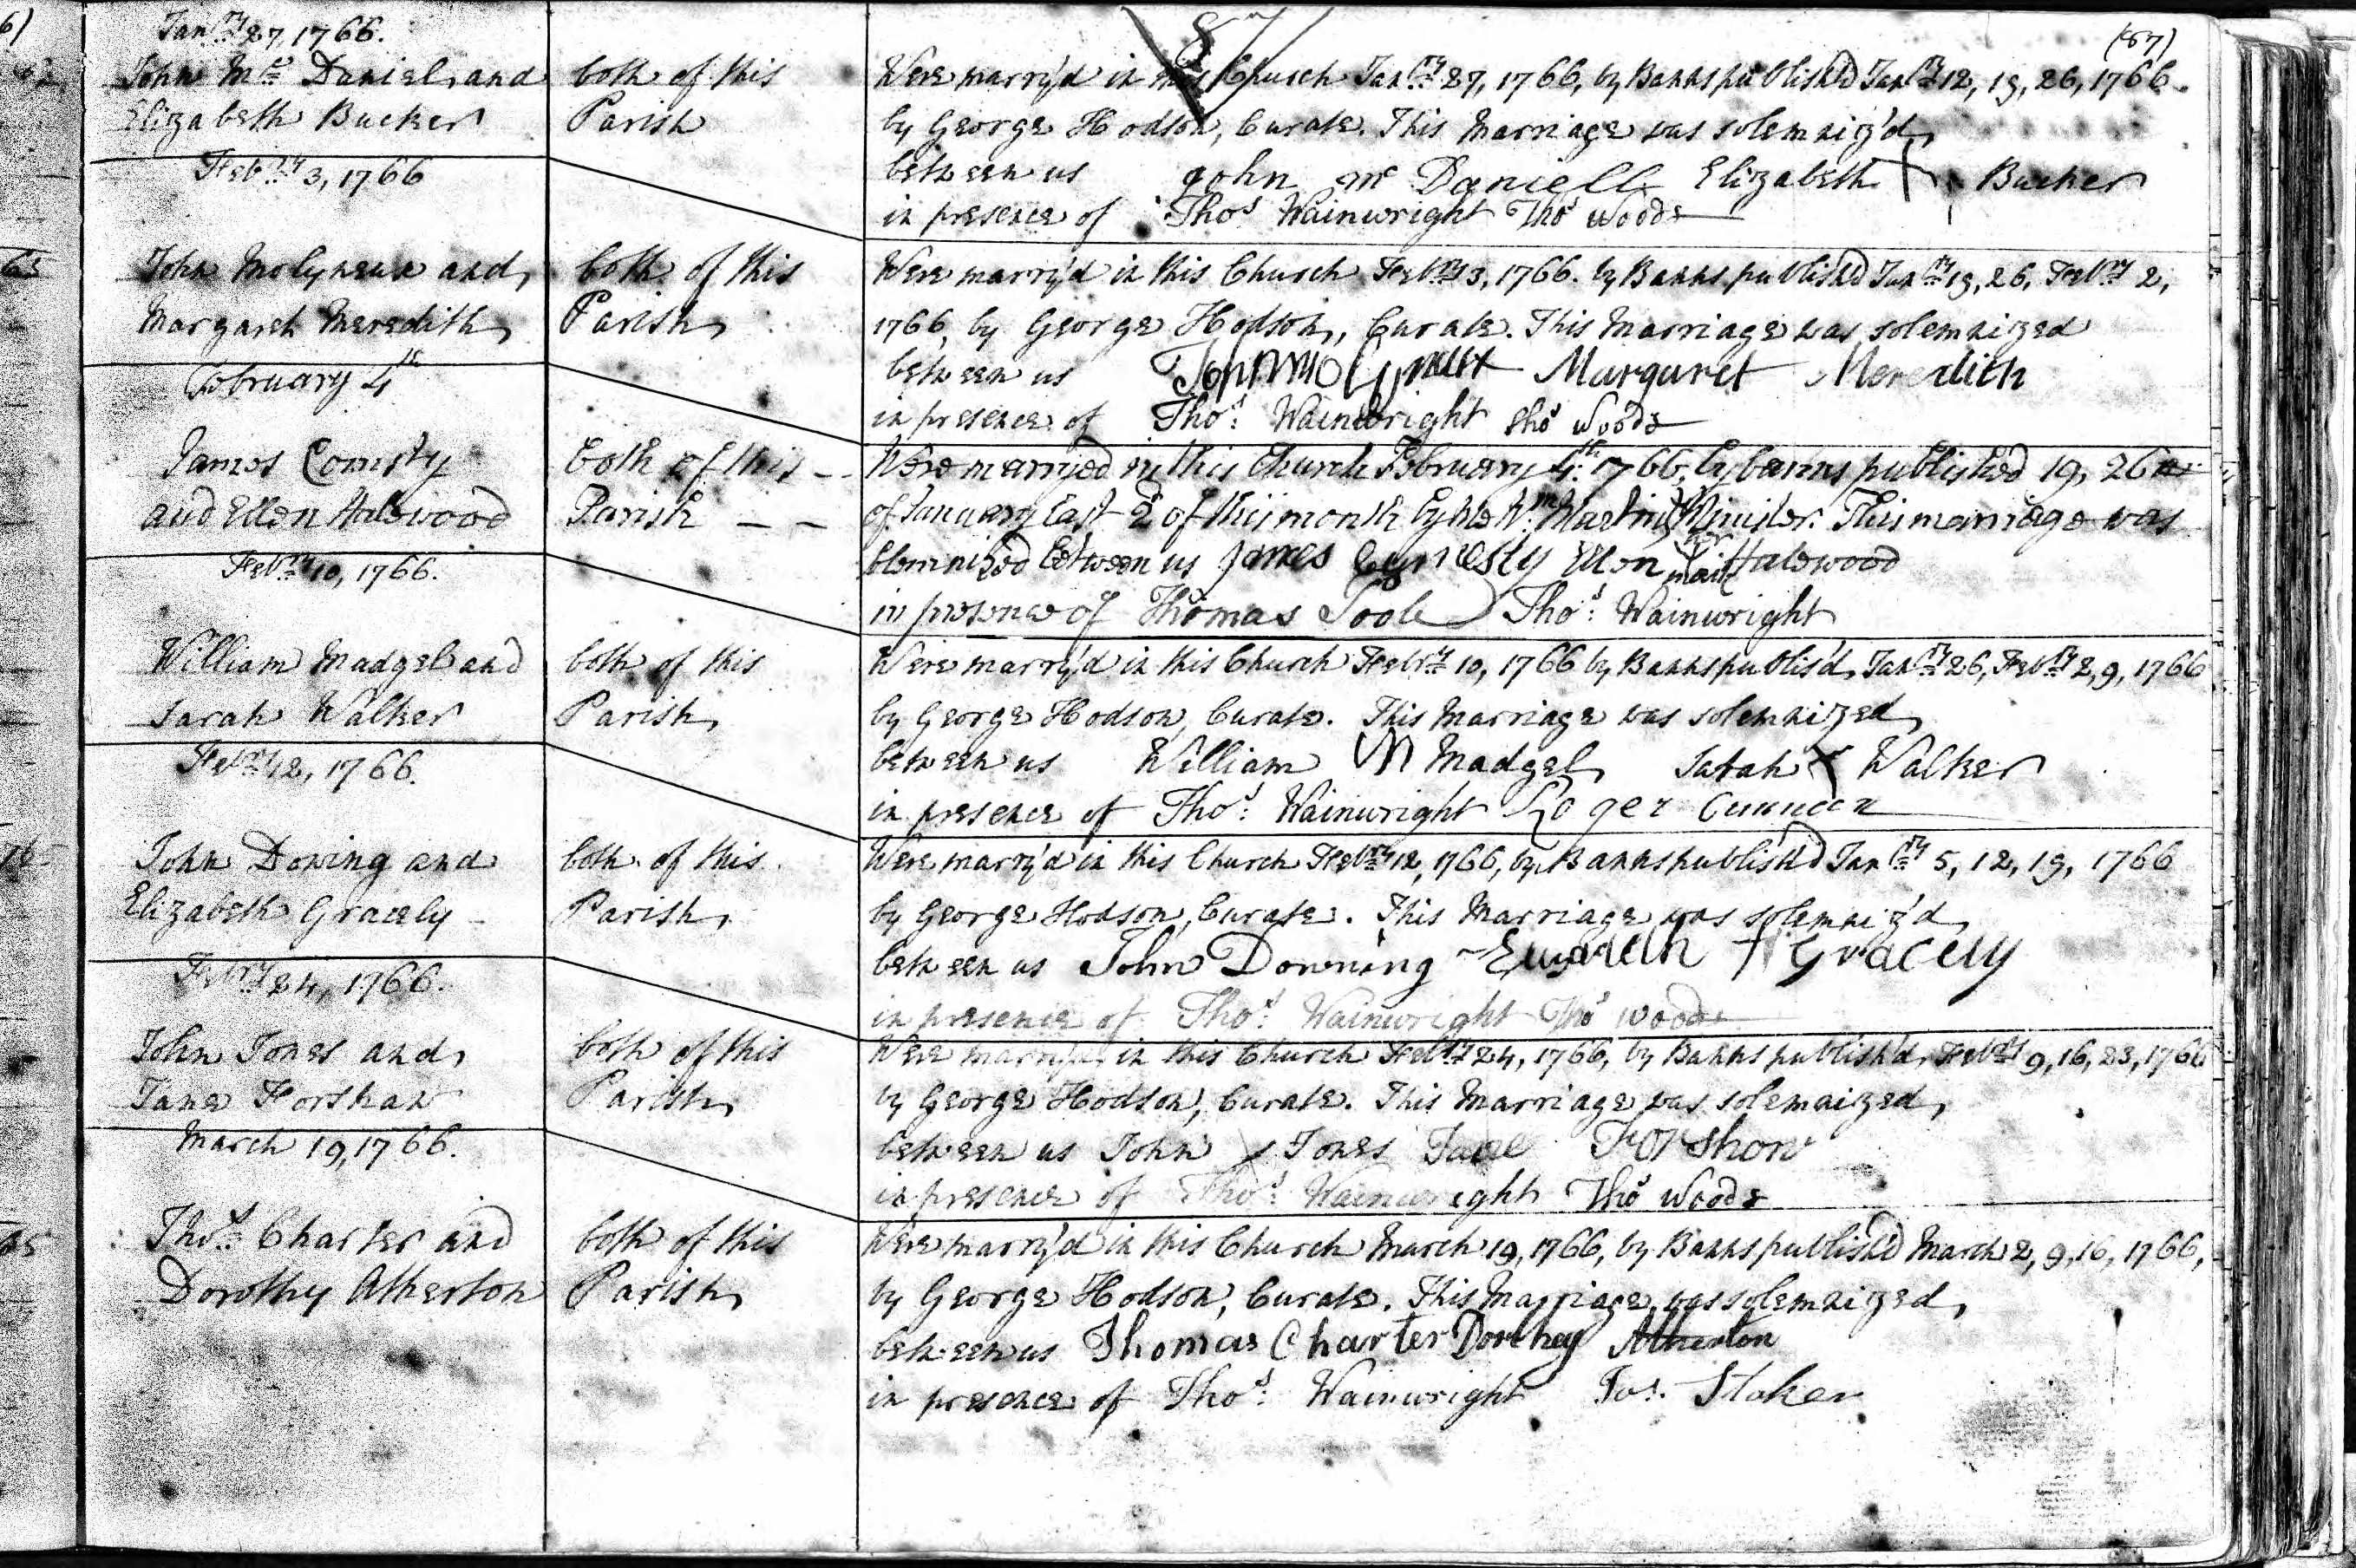 87
(87)
Janry 27, 1766.
John Mc Daniel and
Elizabeth Bucker
both of this
Parish
Were marry'd in this Church Janry 27, 1766, by Banns publish'd Janry 12, 19, 26, 1766.
by George Hodson, Curate. This Marriage was solemniz'd
between us John Mc Daniell Elizabeth X Bucker
in presence of Thos Wainwright Thos Woods
Febry 3, 1766
John Molyneux and
Margaret Meredith
both of this
Parish
Were marry'd in this Church Febry 3, 1766. by Banns publish'd Janry 19, 26, Febry 2,
1766, by George Hodson, Curate. This Marriage was solemnized
between us John Molyneux Margaret Meredith
in presence of Thos: Wainwright Thos Woods
February 4th
James
and Ellen Halewood
both of this
Parish
Were marryed in this Church February 4th: 1766, by banns published 19, 26
of January last 2 of this month by me Wm Martin Minister. This marriage was
between us James Ellen Halewood
in presence of Thomas Poole Thos: Wainwright
Febry 10, 1766.
William Madgel and
Sarah Walker
both of this
Parish
Were marry'd in this Church Febry 10, 1766 by Banns publis'd Janry 26, Febry 2, 9, 1766
by George Hodson, Curate. This Marriage was solemnized
between us William M Madgel Sarah X Walker
in presence of Thos: Wainwright Roger
Febry 12, 1766.
John Downing and
Elizabeth Gracely
both of this
Parish
Were marry'd in this Church Febry 12, 1766, by Banns publish'd Janry 5, 12, 19, 1766
by George Hodson, Curate. This Marriage was solemniz'd
between us John Downing + Gracely
in presence of Thos: Wainwright Thos Woods
Febry 24, 1766.
John Jones and
Jane Forshaw
both of this
Parish
Were marry'd in this Church Febry 24, 1766, by Banns publish'd Febry 9, 16, 23, 1766
by George Hodson, Curate. This Marriage was solemnized
between us John x Jones Jane Forshow
in presence of Thos: Wainwright Thos Woods
March 19, 1766.
Thos Charter and
Dorothy Atherton
both of this
Parish
Were marry'd in this Church March 19, 1766, by Banns publish'd March 2, 9, 16, 1766,
by George Hodson, Curate. This Marriage was solemnized
between us Thomas Charter Dorthey Atherton
in presence of Thos: Wainwright Jos. Stoker